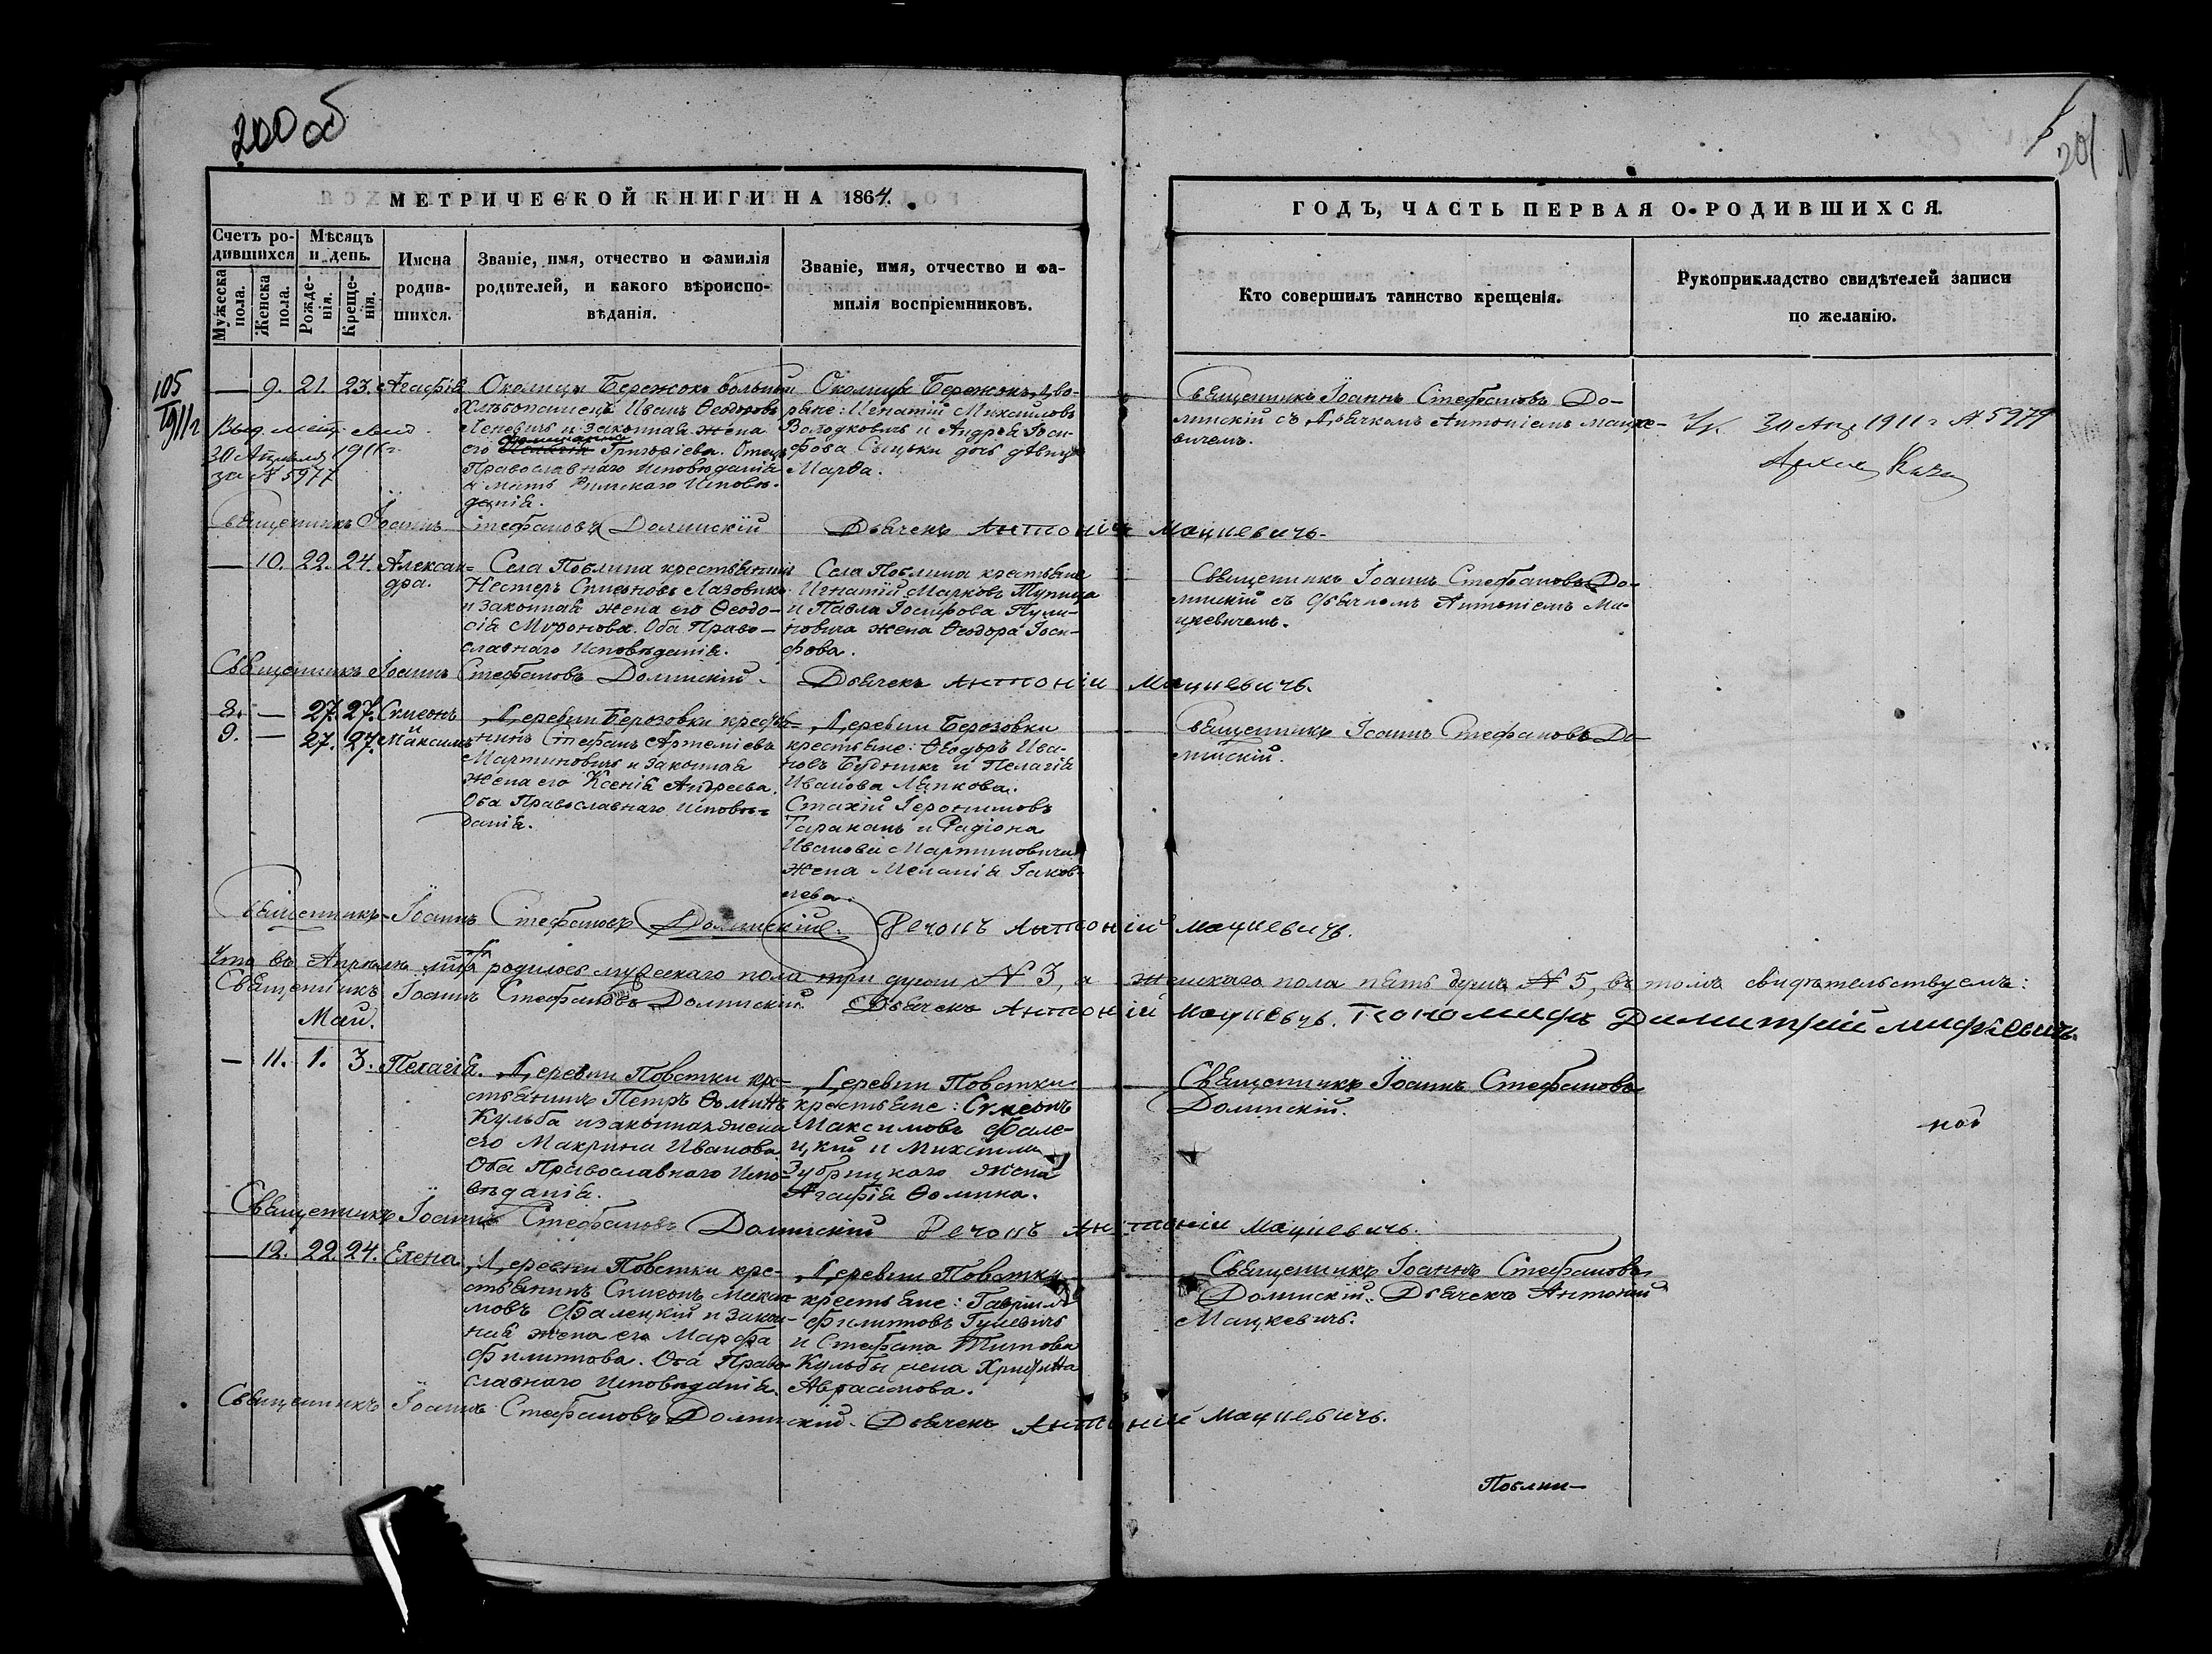 200 об
201
МЕТРИЧЕСКОЙ КНИГИ НА 1864.
Счетъ родившихся
Мѣсяцъ и день.
Мужеска пола.
Женска пола.
Рожденія.
Крещенія.
Имена родив-
шихся.
Званіе, имя, отчество и фамилія
родителей, и какого вѣроиспо-
вѣданія.
Званіе, имя, отчество и фа-
милія воспріемниковъ.
ГОДЪ, ЧАСТЬ ПЕРВАЯ О РОДИВШИХСЯ.
Кто совершилъ таинство крещенія.
Рукоприкладство свидѣтелей записи
по желанію.
105
1911 г
— 9. 21. 23. Агафія
Выд. мещ. свид.
30 Апрѣля 1911 г.
за № 5977
Околицы Бережокъ вольный
хлѣбопашецъ Иванъ Ѳеодоровъ
и законная жена
его Григоріева. Отецъ
Православнаго исповѣданія
а мать Римскаго Исповѣ-
данія.
Околицы Бережокъ дво-
ряне: Игнатій Михайловъ
Володковичъ и Андрея Іоси-
фова Сыцько дочь дѣвица
Марѳа.
Священникъ Іоаннъ Стефановъ До-
линскій съ Дьячкомъ Антоніемъ Мацке-
вичемъ.
30 Апр 1911 г № 5977
Священникъ Іоаннъ Стефановъ Долинскій Дьячекъ Антоній Мацкевичъ.
— 10. 22. 24. Алексан-
дра.
Села Поблина крестьянинъ
Нестеръ Симеоновъ Лазовик
и законная жена его Ѳеодо-
сія Миронова. Оба Право-
славнаго исповѣданія.
Села Поблина крестьяне
Игнатій Марковъ Тупица
и Павла Іосифова Пули-
новича жена Ѳеодора Іоси-
фова.
Священникъ Іоаннъ Стефановъ До-
линскій съ Дьячкомъ Антоніемъ Ма-
цкевичемъ.
Священникъ Іоаннъ Стефановъ Долинскій. Дьячекъ Антоній Мацкевичъ.
8. — 27. 27. Симеонъ
9. — 27. 27. Максимъ
Деревни Берозовки крестья-
нинъ Стефанъ Артеміевъ
Мартиновичъ и законная
жена его Ксенія Андреева.
Оба Православнаго исповѣ-
данія.
Деревни Берозовки
крестьяне: Ѳеодоръ Ива-
новъ Будникъ и Пелагія
Иванова Лапкова.
Стахій Іеронимовъ
Тараканъ и Радіона
Иванова Мартиновича
жена Меланія Іаков-
лева.
Священникъ Іоаннъ Стефановъ До-
линскій.
Священникъ Іоаннъ Стефановъ Долинскій. Дечокъ Антоній Мацкевичъ.
Что въ Апрѣлѣ м-цѣ родилось мужескаго пола три души № 3, а женскаго пола пять душъ № 5, въ томъ свидѣтельствуемъ:
Священникъ Іоаннъ Стефановъ Долинскій. Дьячекъ Антоній Мацкевичъ. Пономарь Димитрій
Май.
— 11. 1. 3. Пелагія.
Деревни Поватки кре-
стьянинъ Петръ Ѳоминъ
Кульба и законная жена
его Макрина Иванова
Оба Православнаго Испо-
вѣданія.
Деревни Поватки
крестьяне: Симеонъ
Максимовъ Фале-
цкій и Михаила
Зубрицкаго жена
Агафія Ѳомина.
Священникъ Іоаннъ Стефановъ
Долинскій.
Священникъ Іоаннъ Стефановъ Долинскій Дечокъ Антоній Мацкевичъ.
— 12. 22. 24. Елена
Деревни Поватки кре-
стьянинъ Симеонъ Макси-
мовъ Фалецкій и закон-
ная жена его Марфа
Филипова. Оба Право-
славнаго Исповѣданія.
Деревни Поватки
крестьяне: Гавріилъ
Филиповъ Гулевичъ
и Стефана Титова
Кульбы жена Христина
Аврамова.
Священникъ Іоаннъ Стефановъ
Долинскій. Дьячекъ Антоній
Мацкевичъ.
Священникъ Іоаннъ Стефановъ Долинскій. Дьячекъ Антоній Мацкевичъ.
Поблин-